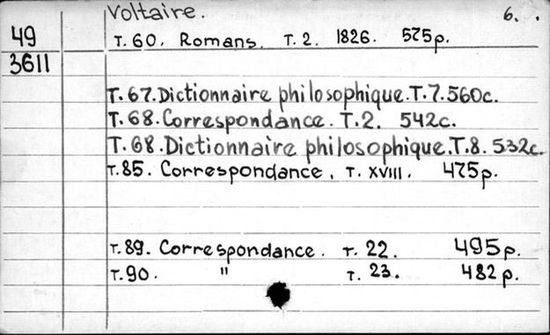 Voltaire. 6.
49 T. 60. Romans. T. 2. 1826. 575p.
3611
T. 67. Dictionnaire philosophique. T. 7. 560c.
T. 68. Correspondance. T. 2. 542c.
T. 68. Dictionnaire philosophique. T. 8. 532c.
T. 85. Correspondance. T. XVIII. 475p.
T. 89. Correspondance. T. 22. 495p.
T. 90. " T. 23. 482p.